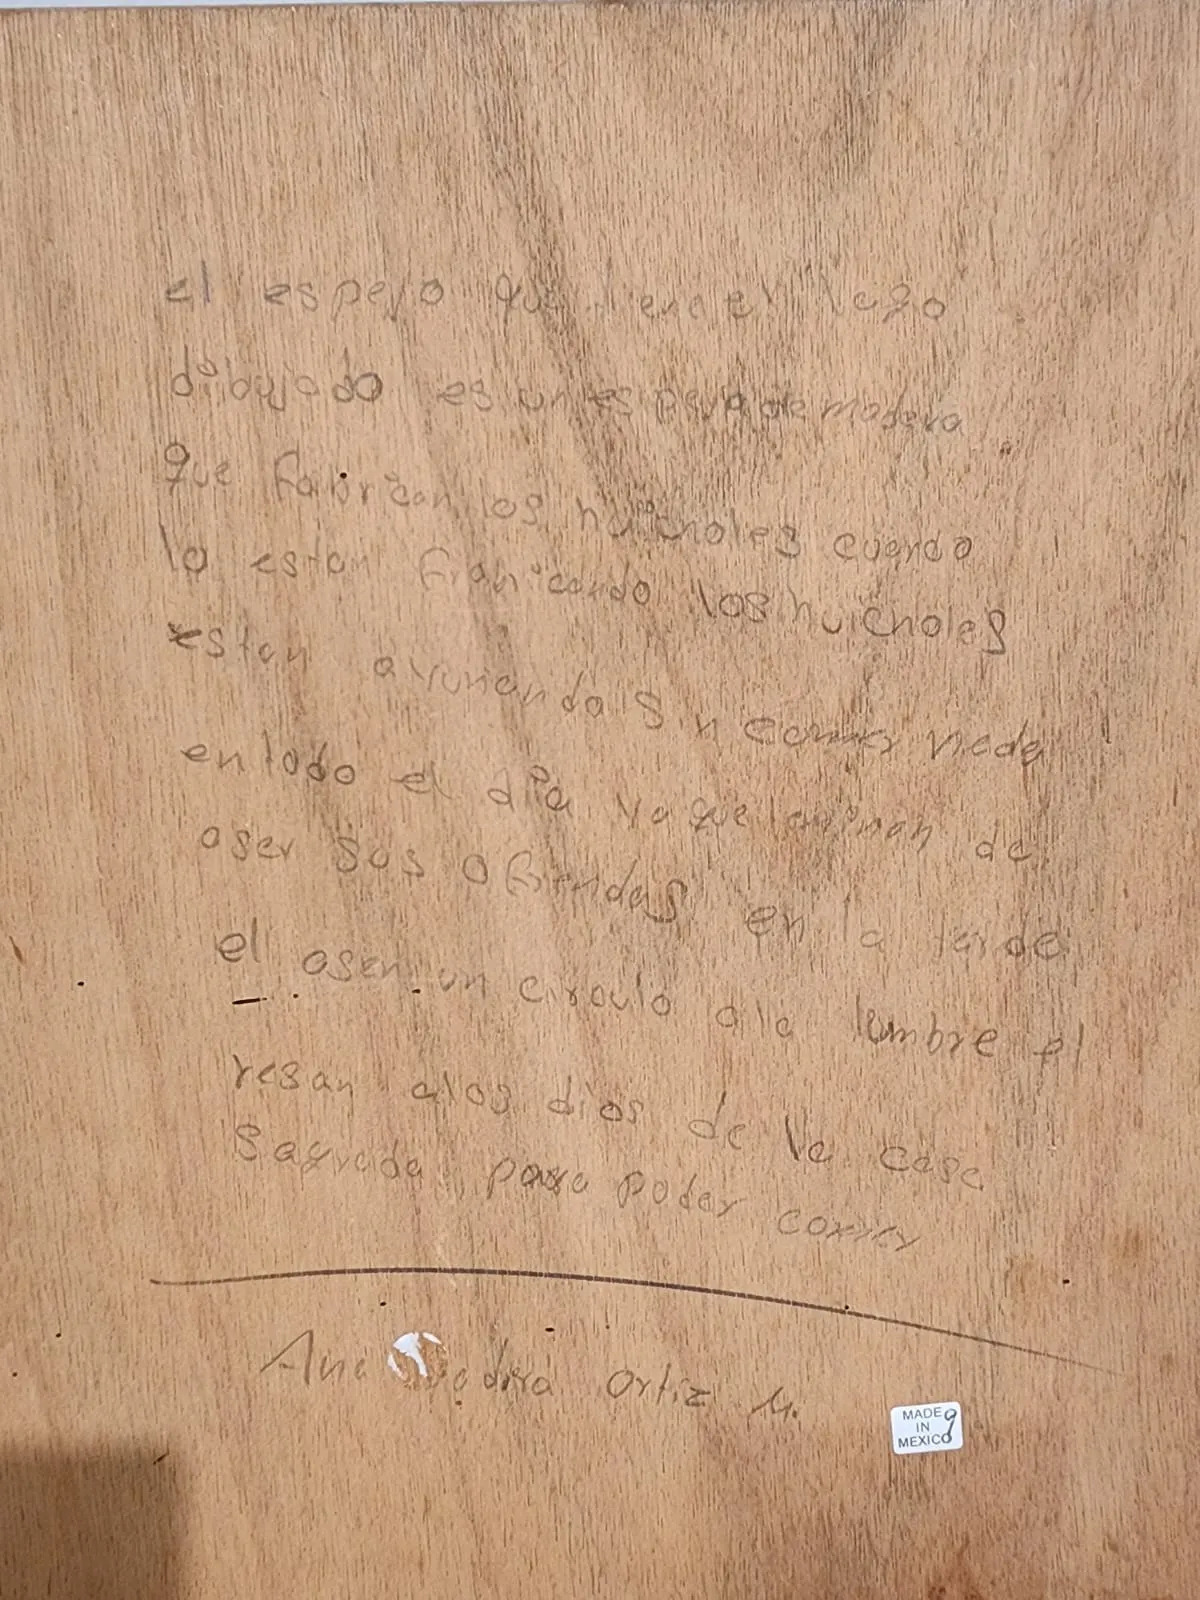 el espejo que tiene el lago
dibujado es un espejo de madera
que fabrican los huicholes cuando
lo estan los huicholes
estan ayunando sin comer nada
en todo el dia ya que de
aser sus ofrendas en la tarde
el asen un circulo a la lumbre el
resan alos dios de la casa
sagrada para poder comer
Ana Ortiz M.
MADE
IN
MEXICO
9